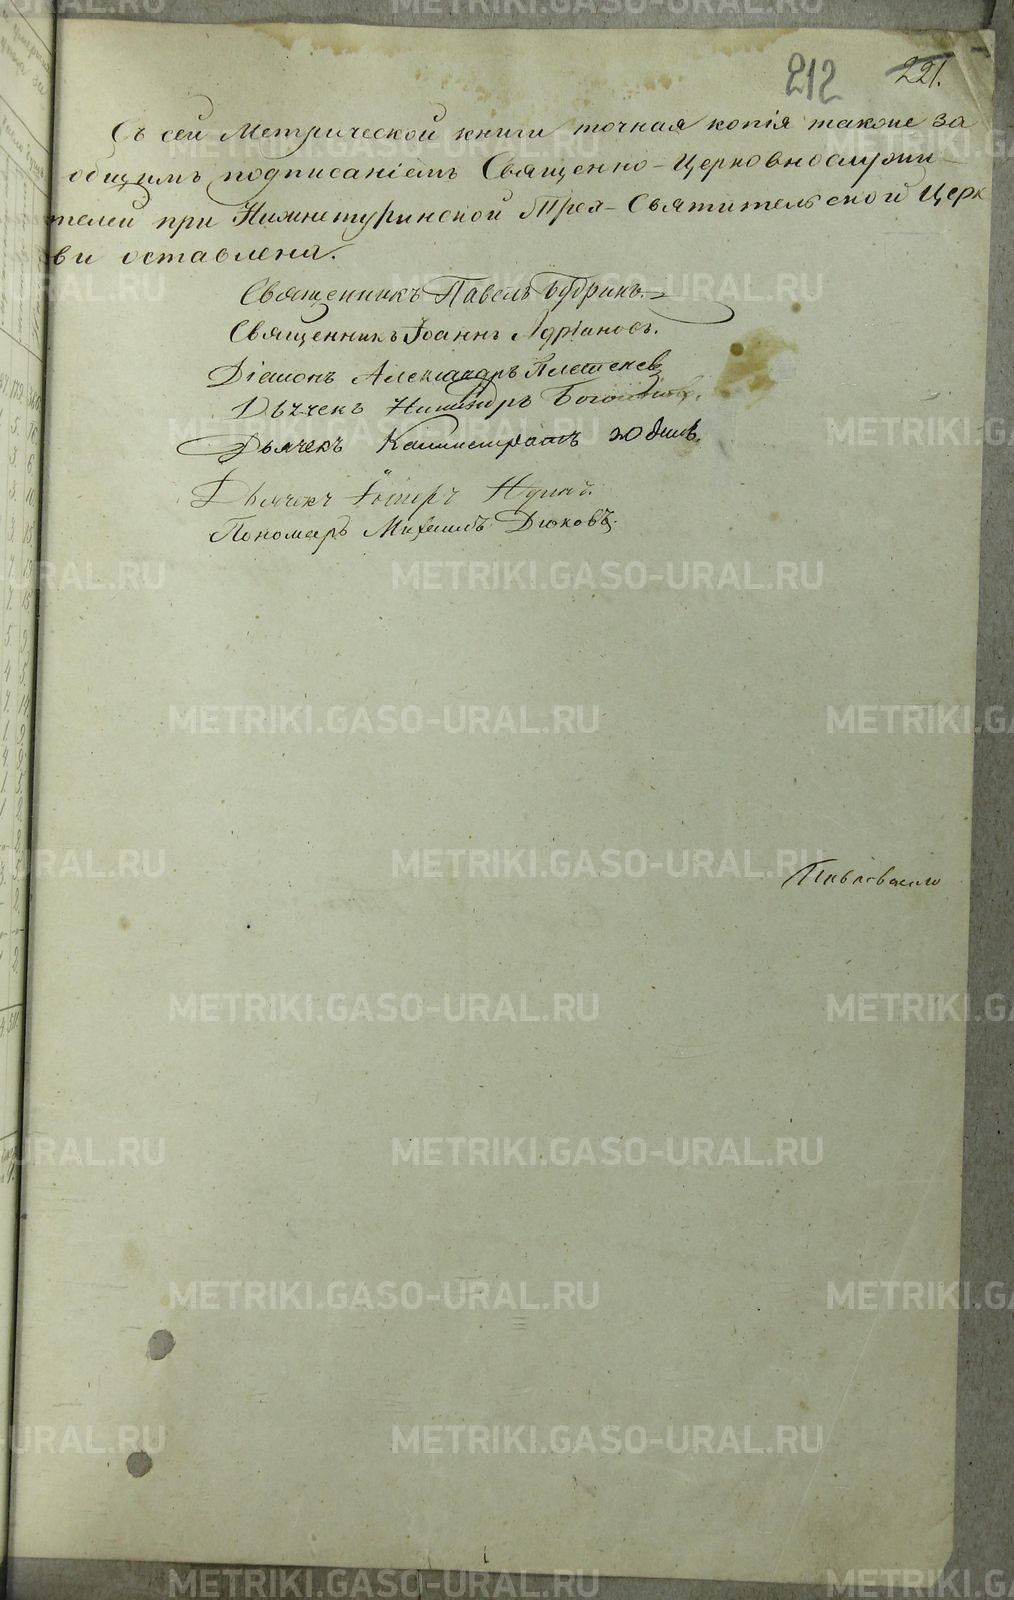 212
221.
Съ сей Метрической книги точная копія также за
общимъ подписаніемъ Священно-церковнослужи-
телей при Нижнетуринской Трех-Святительской Церк
ви оставлена.
Священникъ Павелъ Бубринъ.
Священникъ Іоаннъ Адріановъ.
Діаконъ Александръ Плетеневъ
Дьячекъ Никандръ
Дьячекъ Каллистратъ
Дьячекъ
Пономарь Михаилъ Дюковъ.
METRIKI.GASO-URAL.RU